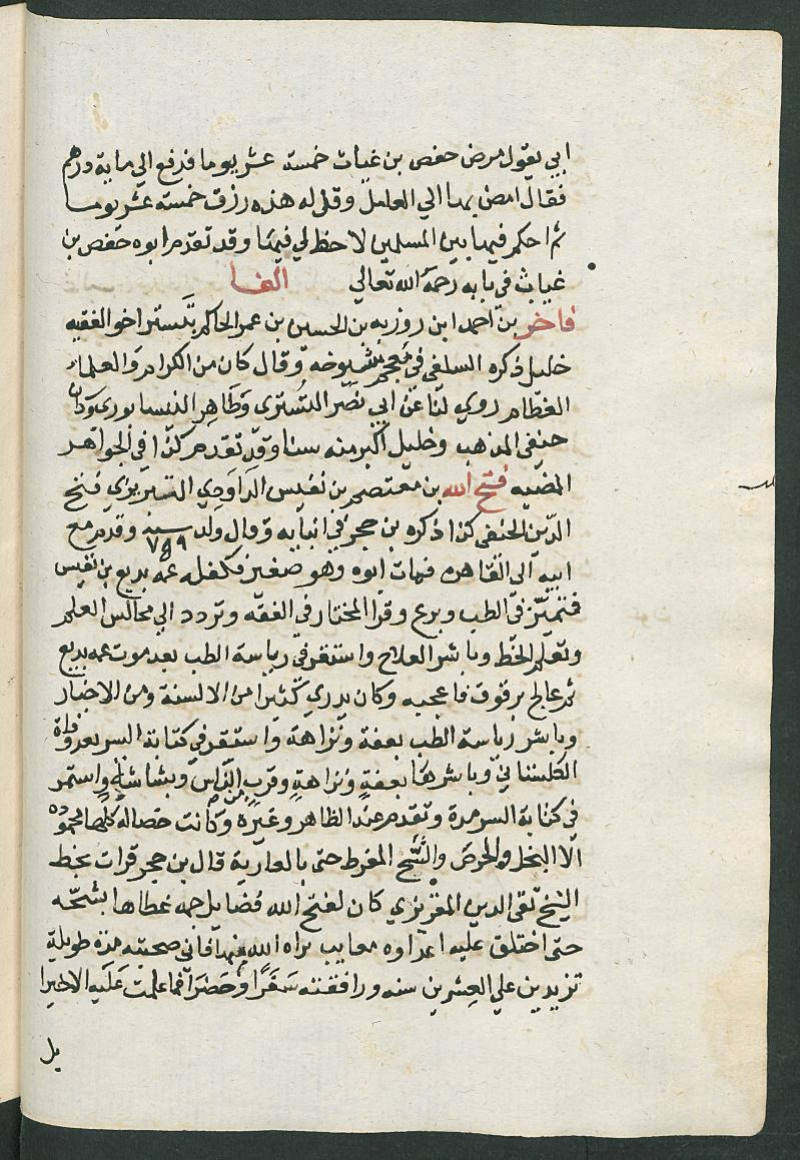 ابي يقول مرض حفص بن غياث خمسة عشر يوما فدفع الي ماية درهم
فقال امض بها الي العامل وقل له هذه رزق خمسة عشر يوما
لم احكم فيها بين المسلمين لا حظ لي فيها وقد تقدم ابوه حفص بن
غياث في بابه رحمه الله تعالي الفا
فاخر بن احمد ابن روزبه بن الحسين بن عمر الحاكم بتستر اخو الفقيه
خليل ذكره السلفي في معجم شيوخه وقال كان من الكرام والعلماء
العظام روي لنا عن ابي نصر التستري وطاهر النيسابوري وكان
حنفي المذهب وخليل اكبر منه سنا وقد تقدم كذا في الجواهر
المضيه فتح الله بن معتصم بن نفيس الداودي التبريزي فتح
الدين الحنفي كذا ذكره بن حجر في انبايه وقال ولد سنة ٧٥٩ وقدم مع
ابيه الي القاهرة فمات ابوه وهو صغير فكفله عمه بديع بن نفيس
فتميّز في الطب وبرع وقرا المختار في الفقه وتردد الي مجالس العلم
وتعلم الخط وباشر العلاج واستقر في رياسة الطب بعد موت عمه بديع
ثم عالج برقوق فاعجبه وكان يدري كثيرا من الالسنة ومن الاخبار
وباشر رياسة الطب بعفة ونزاهة واستقر في كتابة السر بعد وفاة
الكلستاني وباشرها بعفةٍ ونزاهةٍ وقربٍ من الناس وبشاشةٍ واستمر
في كتابة السر مدة وتقدم عند الظاهر وغيره وكانت خصاله كلها محمودة
الا البخل والحرص والشح المفرط حتي بالعارية قال بن حجر قرات بخط
الشيخ تقي الدين المقريزي كان لفتح الله فضايل جمه غطاها بشحّه
حتى اختلق عليه اعداوه معايب براه الله منها فاني صحبته مدة طويلة
تزيد بن علي العشرين سنه ورافقته سَفَرًا وحَضَرًا فما علمت عَلَيه الاخيرا
بل